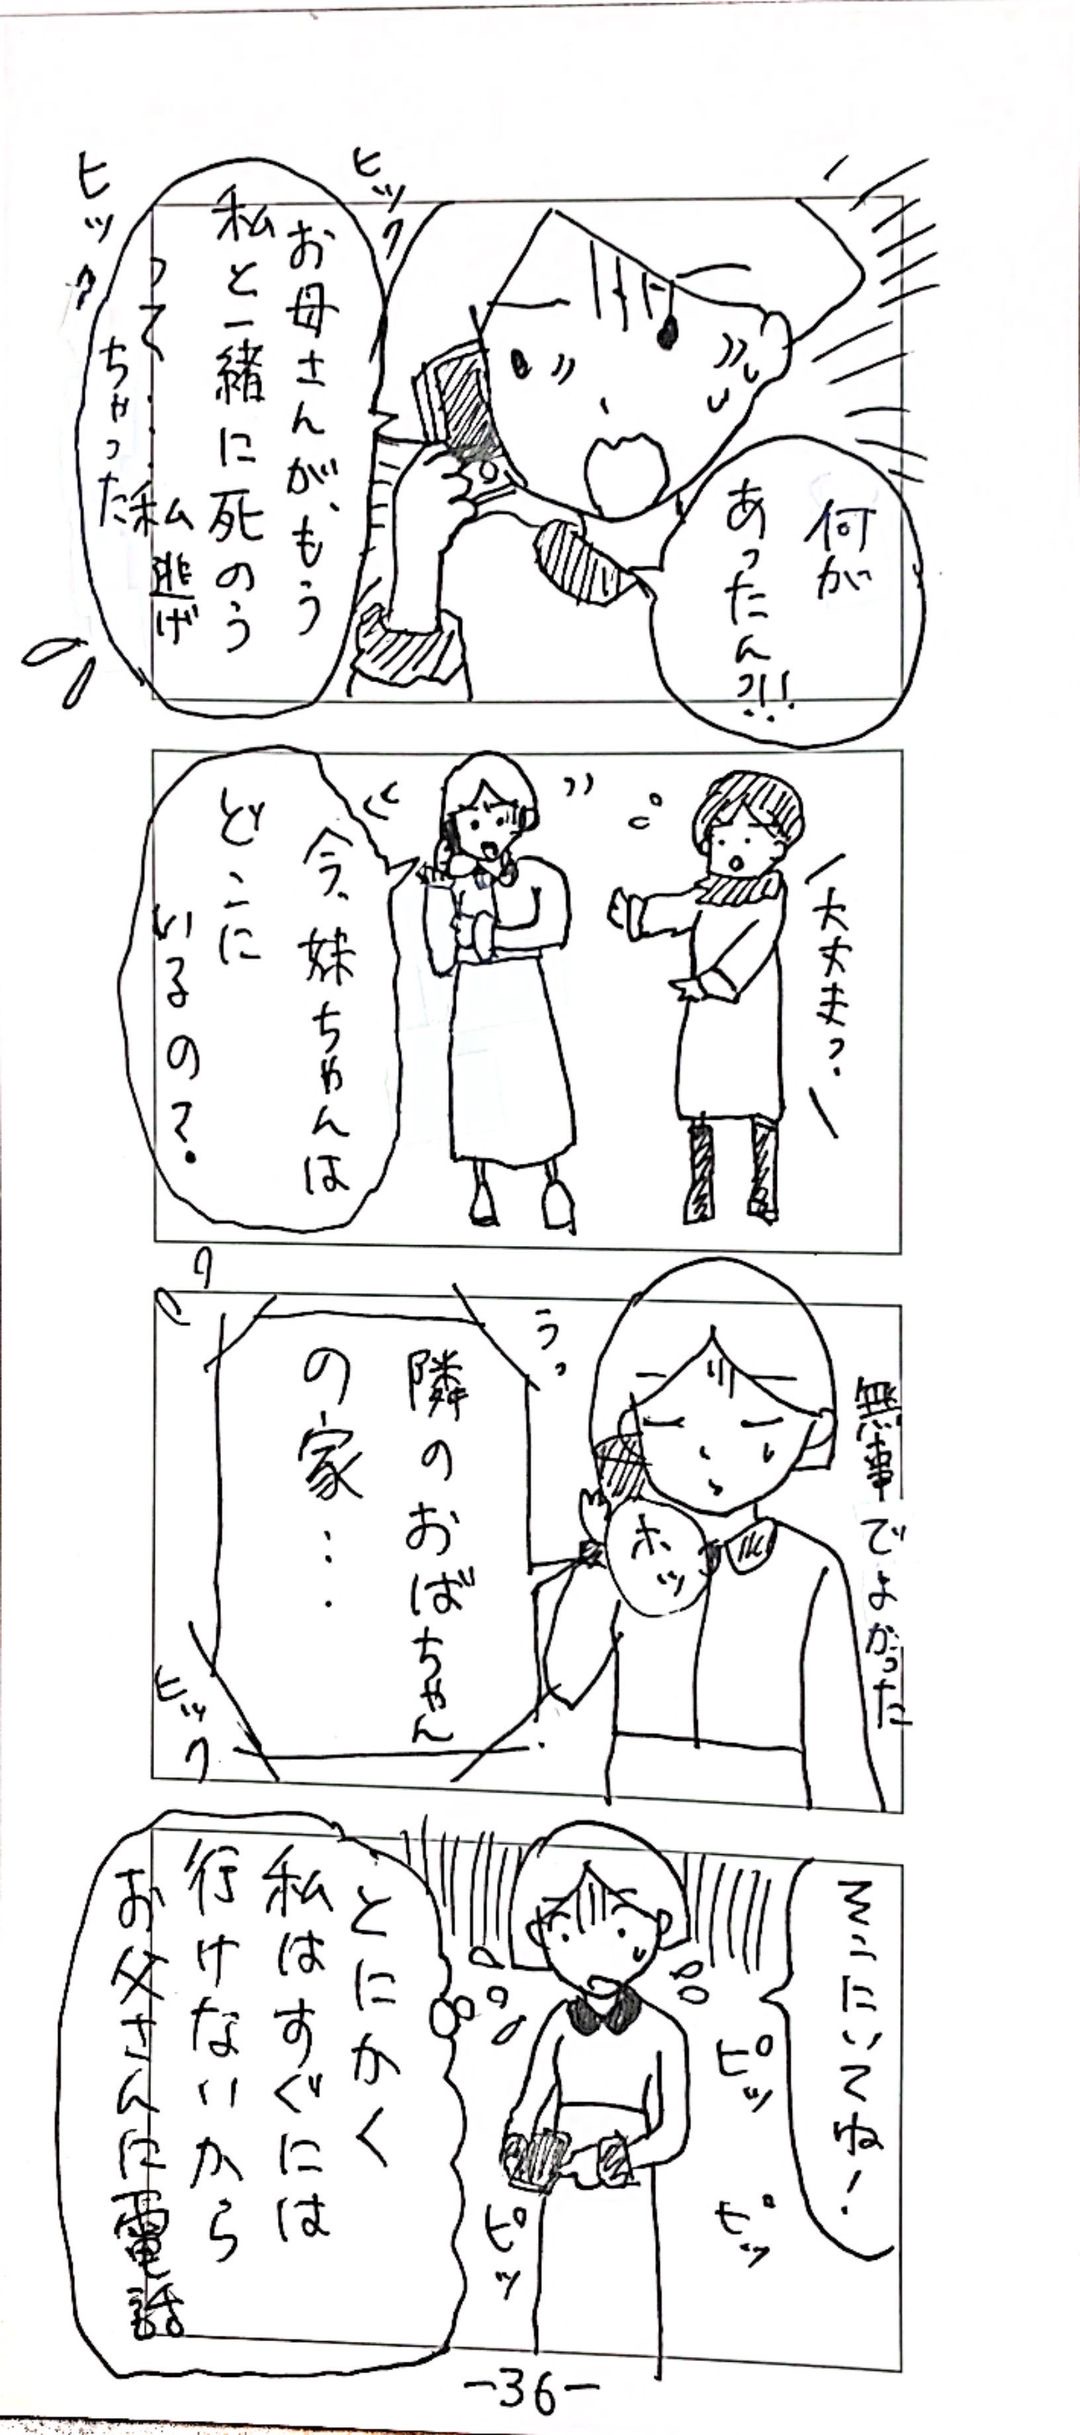 何が
あったん?!!
ヒック
お母さんが、もう
私と一緒に死のう
って…私逃げ
ちゃった
ヒック
大丈夫?
今、妹ちゃんは
どこに
いるの?
無事でよかった
ホッ
うっ
隣のおばちゃん
の家…
ヒック
そこにいてね!
ピッ
ピッ
ピッ
とにかく
私はすぐには
行けないから
お父さんに電話
-36-